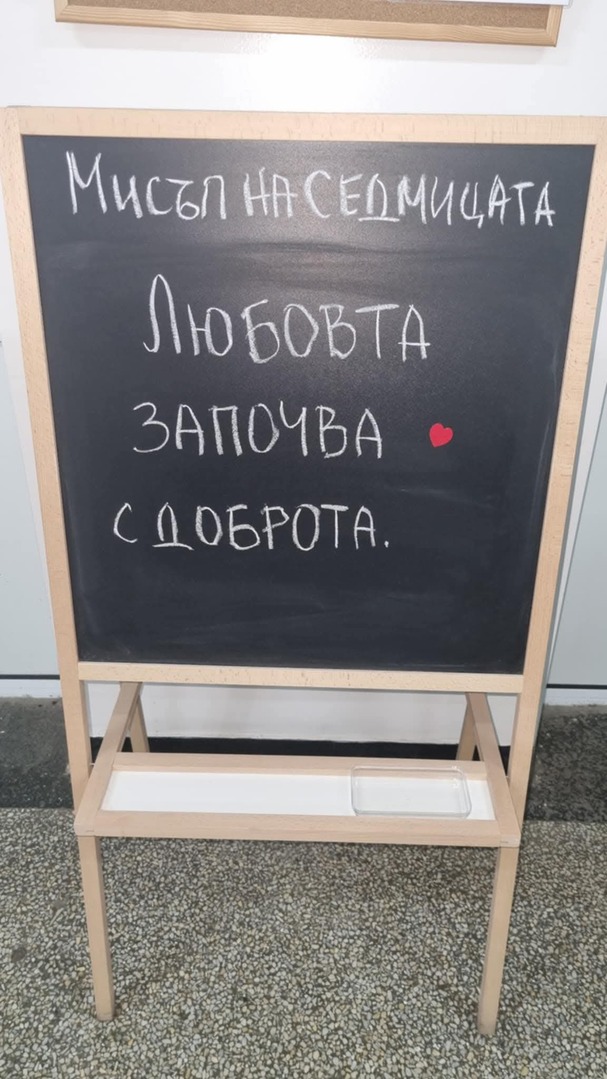 Мисъл на седмицата
Любовта
започва
с доброта.